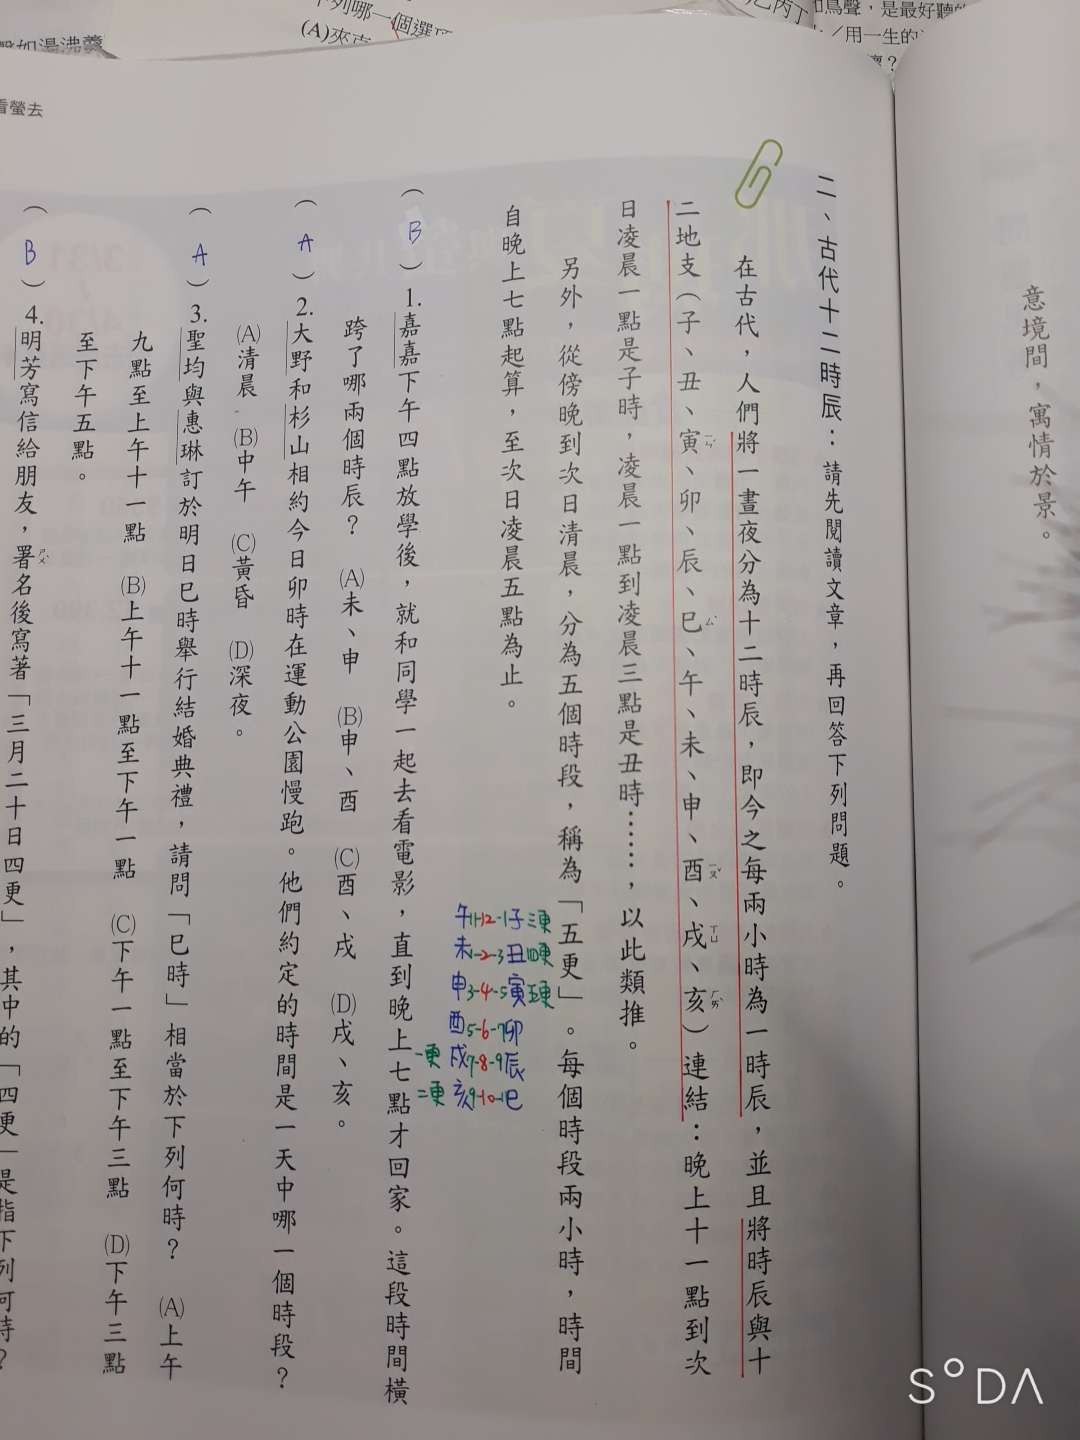 意境間，寓情於景。
二、古代十二時辰：請先閱讀文章，再回答下列問題。
在古代，人們將一晝夜分為十二時辰，即今之每兩小時為一時辰，並且將時辰與十
二地支（子、丑、寅、卯、辰、巳、午、未、申、酉、戌、亥）連結：晚上十一點到次
ㄧㄣˊ
ㄙˋ
ㄧㄡˇ
ㄒㄩ
ㄏㄞˋ
日凌晨一點是子時，凌晨一點到凌晨三點是丑時……，以此類推。
另外，從傍晚到次日清晨，分為五個時段，稱為「五更」。每個時段兩小時，時間
自晚上七點起算，至次日凌晨五點為止。
午11-12-1子三更
未1-2-3丑四更
申3-4-5寅五更
酉5-6-7卯
一更戌7-8-9辰
二更亥9-10-11巳
（B）1.嘉嘉下午四點放學後，就和同學一起去看電影，直到晚上七點才回家。這段時間橫
跨了哪兩個時辰？ (A)未、申 (B)申、酉 (C)酉、戌 (D)戌、亥。
（A）2.大野和杉山相約今日卯時在運動公園慢跑。他們約定的時間是一天中哪一個時段？
(A)清晨 (B)中午 (C)黃昏 (D)深夜。
（A）3.聖均與惠琳訂於明日巳時舉行結婚典禮，請問「巳時」相當於下列何時？ (A)上午
九點至上午十一點 (B)上午十一點至下午一點 (C)下午一點至下午三點 (D)下午三點
至下午五點。
（B）4.明芳寫信給朋友，署名後寫著「三月二十日四更」，其中的「四更」是指下列何時？
ㄕㄨˇ
看螢去
下列哪一個選項
(A)夾克
聲如湯沸羹
乙丙丁
如鳥聲，是最好聽的
／用一生的
SODA